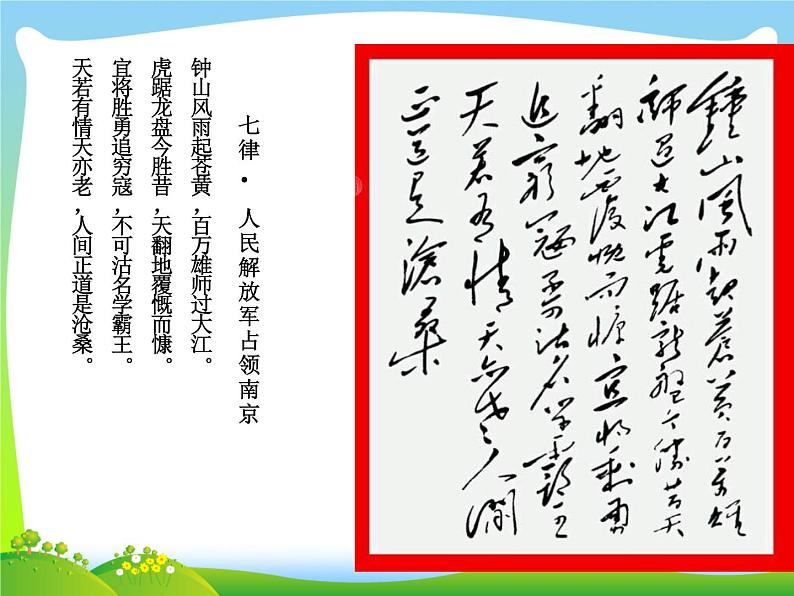 七律·人民解放军占领南京
钟山风雨起苍黄,百万雄师过大江。
虎踞龙盘今胜昔,天翻地覆慨而慷。
宜将胜勇追穷寇,不可沽名学霸王。
天若有情天亦老,人间正道是沧桑。
鍾山风雨起蒼黄百万雄
师过大江虎踞龙盤今勝昔天
翻地覆慨而慷宜将剩勇
追穷寇不可沽名学霸王
天若有情天亦老人间
正道是滄桑